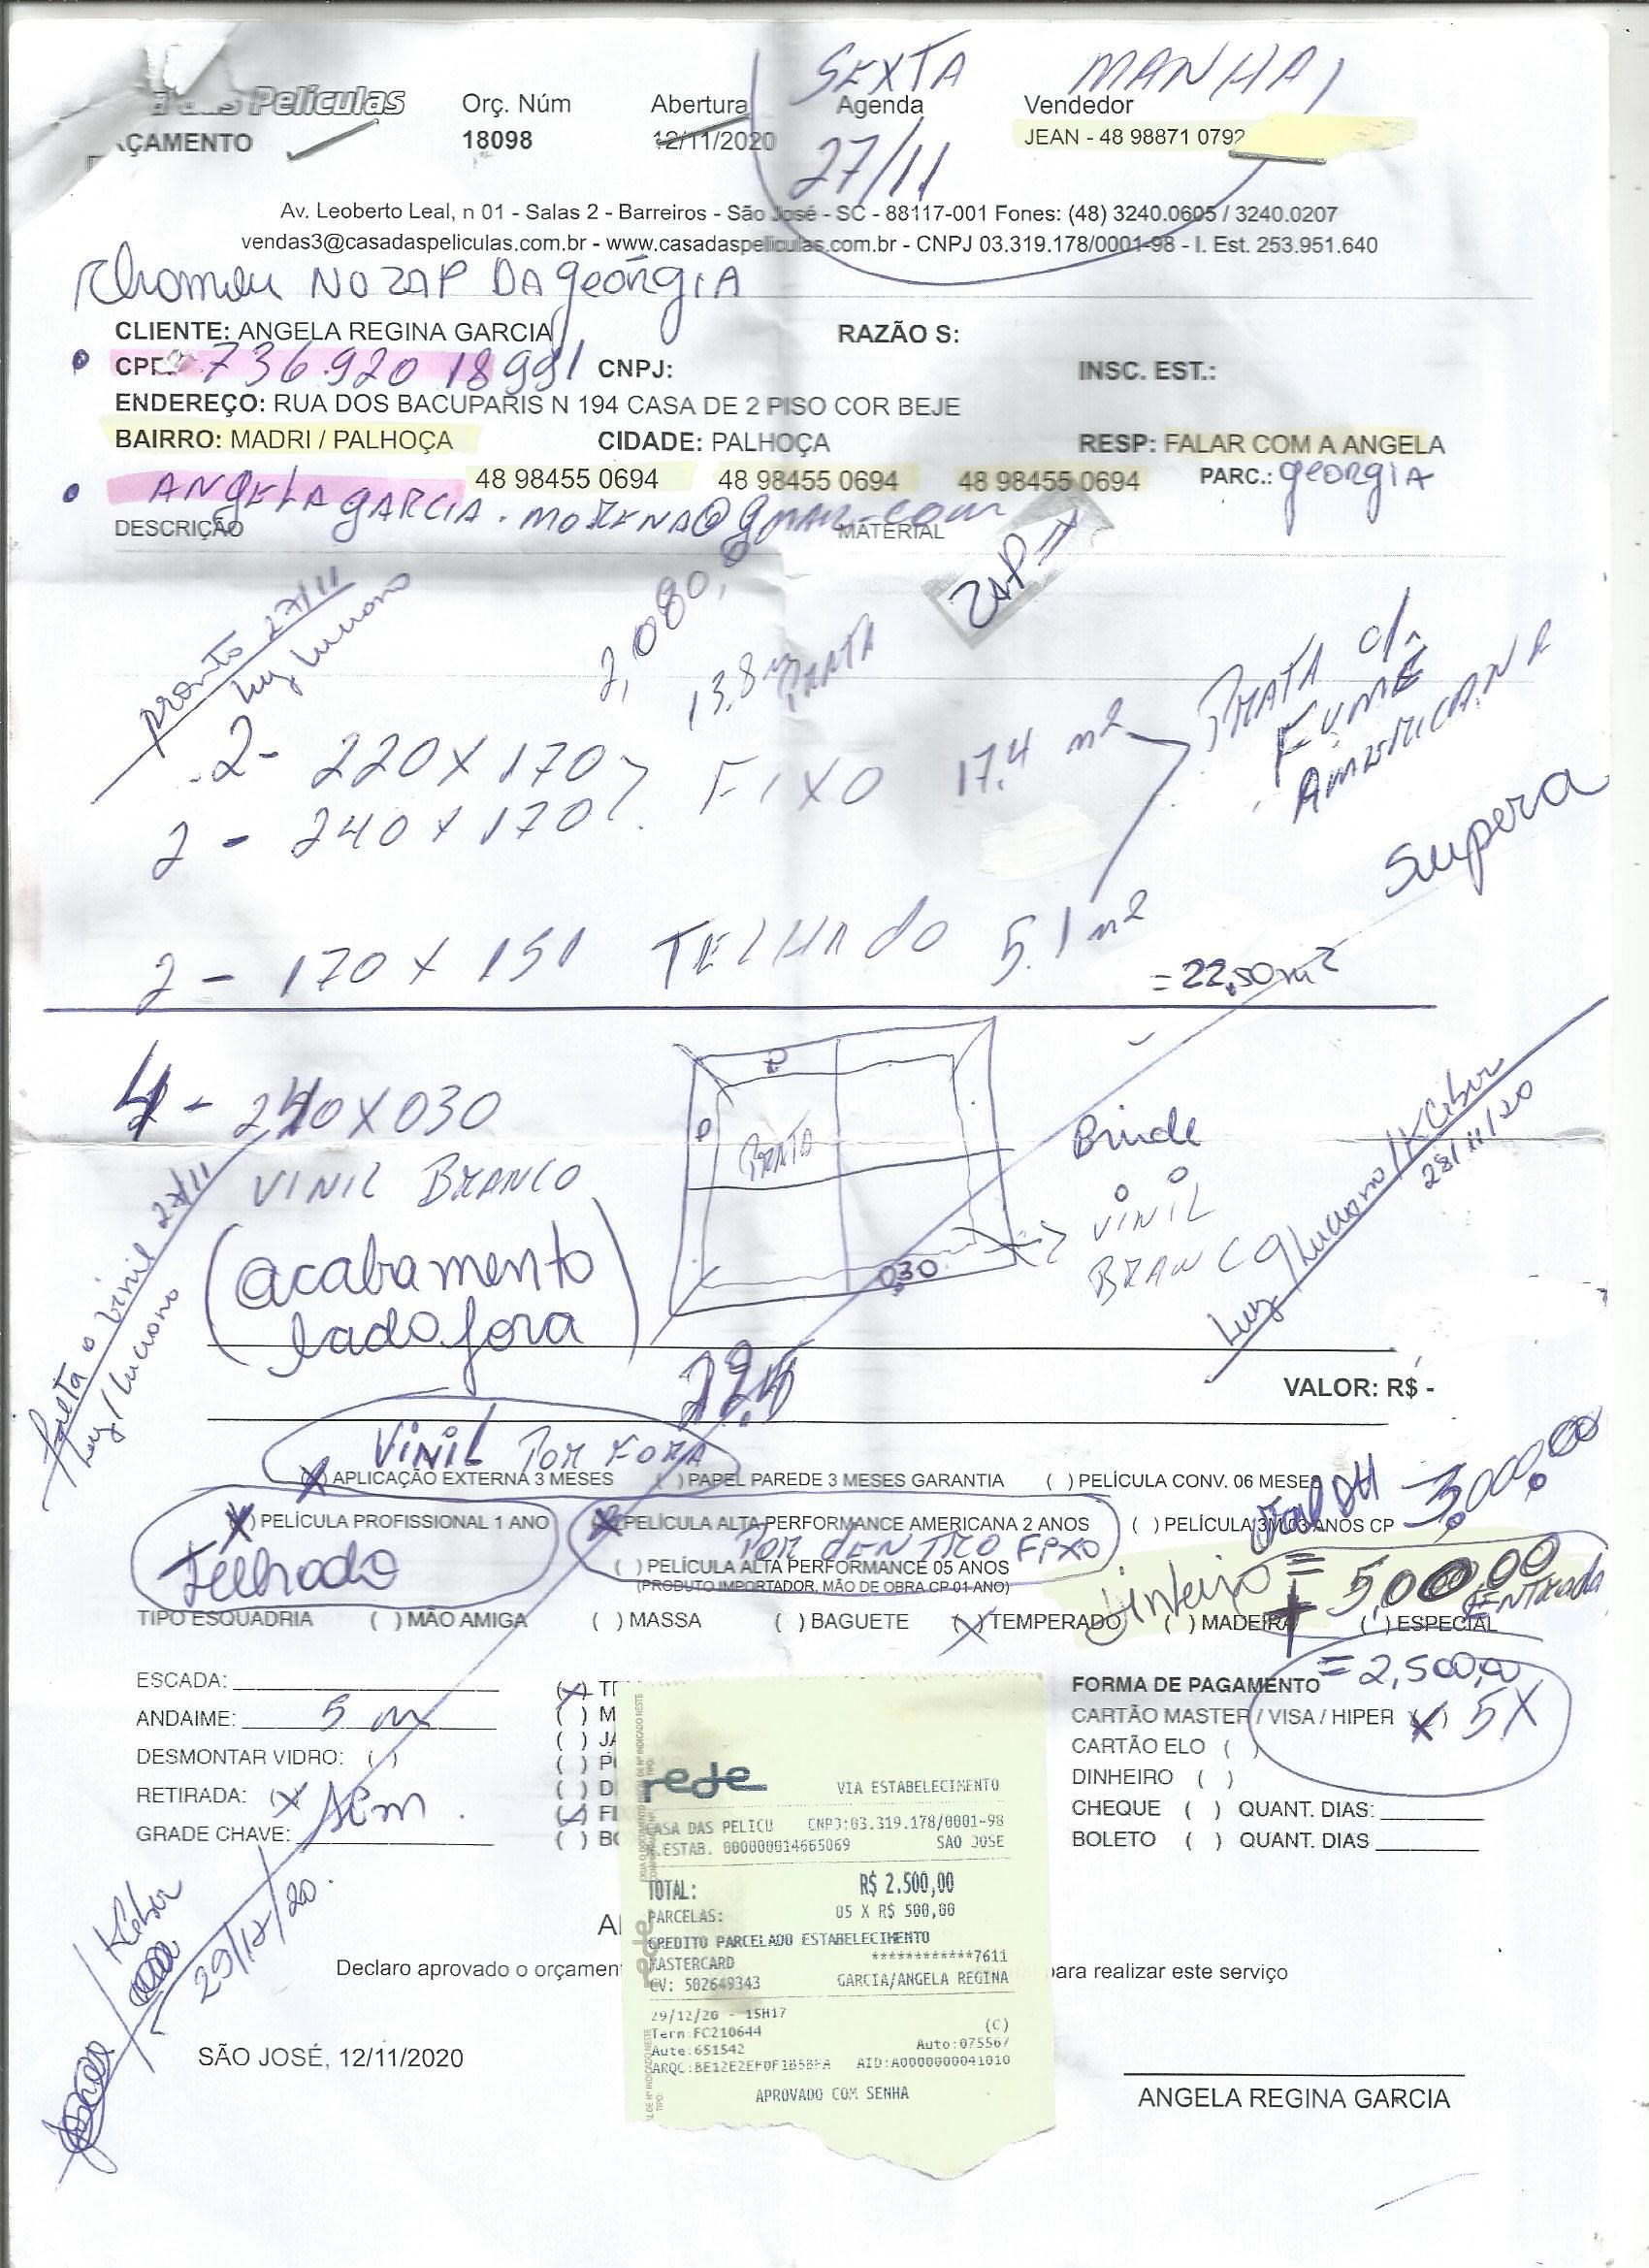 SEXTA MANHA
das Películas Orç. Núm Abertura Agenda Vendedor
ÇAMENTO 18098 12/11/2020 27/11 JEAN - 48 98871 0792
Av. Leoberto Leal, n 01 - Salas 2 - Barreiros - São José - SC - 88117-001 Fones: (48) 3240.0605 / 3240.0207
vendas3@casadaspeliculas.com.br - www.casadaspeliculas.com.br - CNPJ 03.319.178/0001-98 - I. Est. 253.951.640
NO ZAP DA geórgiA
CLIENTE: ANGELA REGINA GARCIA RAZÃO S:
CPF: 736.920 18991 CNPJ: INSC. EST.:
ENDEREÇO: RUA DOS BACUPARIS N 194 CASA DE 2 PISO COR BEJE
BAIRRO: MADRI / PALHOÇA CIDADE: PALHOÇA RESP: FALAR COM A ANGELA
48 98455 0694 48 98455 0694 48 98455 0694 PARC.: georgiA
ANgELAgARCIA.moRENA@gmail.com
DESCRIÇÃO MATERIAL
ZAP
pronto 27/11
Luy Luciano
2,080,
13.8 m PRATA
2- 220X170
2 - 240 X 170 FIXO 17.4 m2
PRATA d.
FUMÊ
AmERICANA
Supera
2 - 170 X 151 TELHAdo 5.1 m2
= 22,50m2
4 - 240X030
VINIL BRANCO
P
P
PRATA
0,30
Brinde
VINIL
BRANCO
(acabamento
lado fora)
falta o vinil 27/11
Luy/Luciano
Luy/Luciano/Kleber
28/11/20
22.5
VALOR: R$ -
VINIL POR FORA
(X) APLICAÇÃO EXTERNA 3 MESES ( ) PAPEL PAREDE 3 MESES GARANTIA ( ) PELÍCULA CONV. 06 MESES
3,000,00
(X) PELÍCULA PROFISSIONAL 1 ANO (X) PELÍCULA ALTA PERFORMANCE AMERICANA 2 ANOS ( ) PELÍCULA 3M 03 ANOS CP
Telhado
POR dENTRO FIXO
( ) PELÍCULA ALTA PERFORMANCE 05 ANOS
(PRODUTO IMPORTADOR, MÃO DE OBRA CP 01 ANO)
= 5,00,00
ENTRADA
TIPO ESQUADRIA ( ) MÃO AMIGA ( ) MASSA ( ) BAGUETE (X) TEMPERADO ( ) MADEIRA ( ) ESPECIAL
= 2,500,00
ESCADA:
ANDAIME: 5 m
DESMONTAR VIDRO: ( )
RETIRADA: (X) Sem
GRADE CHAVE:
FORMA DE PAGAMENTO
CARTÃO MASTER / VISA / HIPER (X) 5X
CARTÃO ELO ( )
DINHEIRO ( )
CHEQUE ( ) QUANT. DIAS:
BOLETO ( ) QUANT. DIAS
rede
VIA ESTABELECIMENTO
CASA DAS PELICU CNPJ:03.319.178/0001-98
N.ESTAB. 000000014665069 SAO JOSE
TOTAL: R$ 2.500,00
PARCELAS: 05 X R$ 500,00
CREDITO PARCELADO ESTABELECIMENTO
MASTERCARD ************7611
CV: 502649343 GARCIA/ANGELA REGINA
29/12/20 - 15H17 (C)
Term:FC210644 Auto:075567
Aute:651542
ARQC:BE12E2EF0F1B5BFA AID:A0000000041010
APROVADO COM SENHA
Kleber
29/12/20.
Declaro aprovado o orçamen para realizar este serviço
SÃO JOSÉ, 12/11/2020
ANGELA REGINA GARCIA